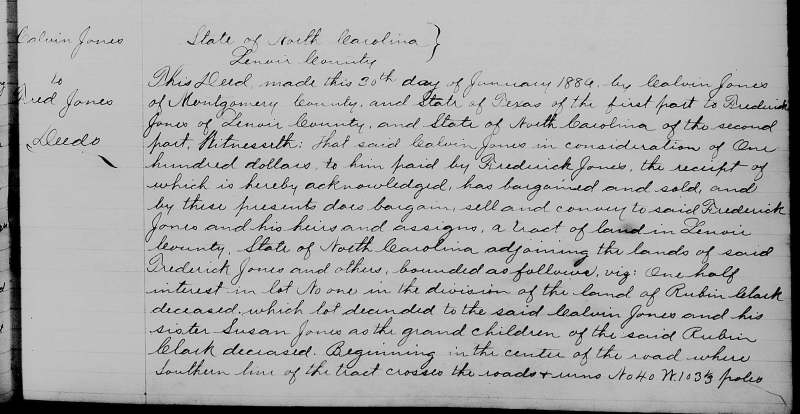 Calvin Jones
to
Fred Jones
Deed
State of North Carolina }
Lenoir County
This Deed, made this 30th day of January 1889, by Calvin Jones
of Montgomery County, and State of Texas of the first part to Frederick
Jones of Lenoir County, and State of North Carolina of the second
part, Witnesseth: That said Calvin Jones in consideration of One
hundred dollars, to him paid by Frederick Jones, the receipt of
which is hereby acknowledged, has bargained and sold, and
by these presents does bargain, sell and convey to said Frederick
Jones and his heirs and assigns, a tract of land in Lenoir
County, State of North Carolina adjoining the lands of said
Frederick Jones and others, bounded as follows, viz: One half
interest in lot No one in the division of the land of Rubin Clark
deceased, which lot decended to the said Calvin Jones and his
sister Susan Jones as the grand children of the said Rubin
Clark deceased. Beginning in the center of the road where
Southern line of the tract crosses the roads & runs No 40 W. 103⅓ poles